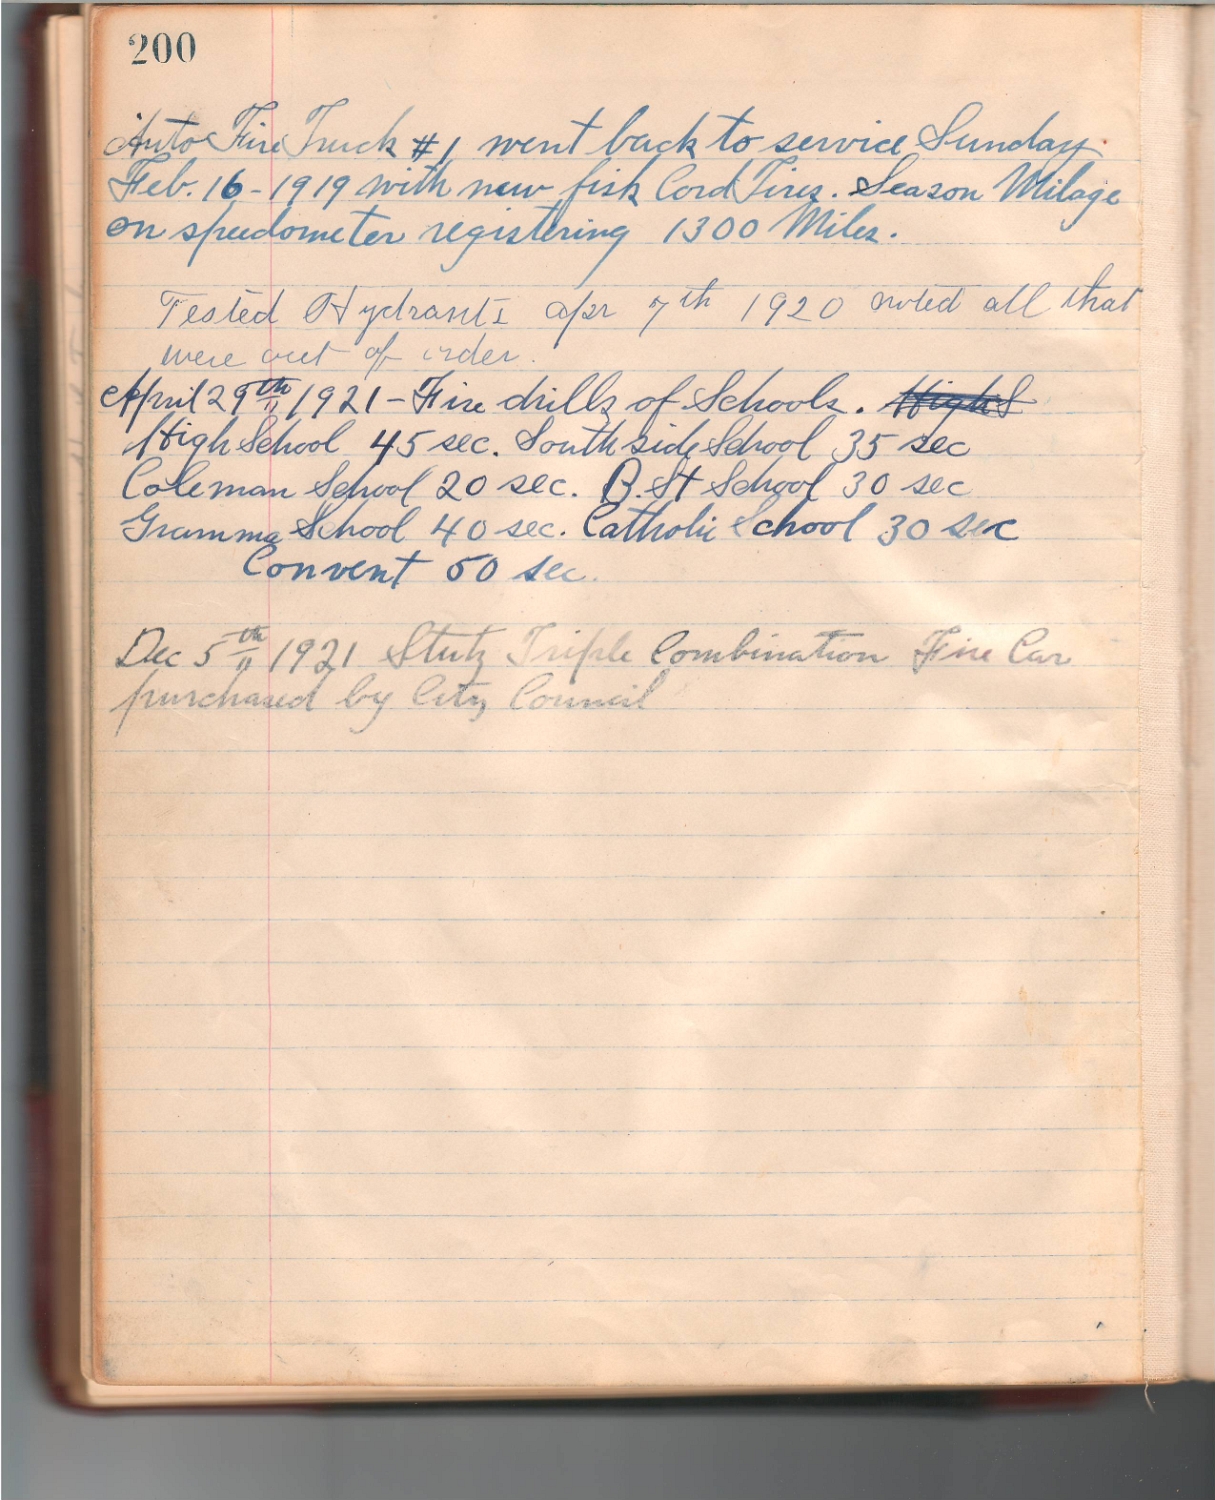 200
Auto Fire Truck #1 went back to service Sunday
Feb. 16-1919 with new fisk Cord Tires. Season Milage
on speedometer registering 1300 Miles.
Tested Hydrants apr 7th 1920 noted all that
were out of order.
April 29th 1921 - Fire drills of Schools. High S
High School 45 sec. South side School 35 sec
Coleman School 20 sec. B. St School 30 sec
Gramma School 40 sec. Catholic School 30 sec
Convent 50 sec.
Dec 5th 1921 Stutz Triple Combination Fire Car
purchased by City Council